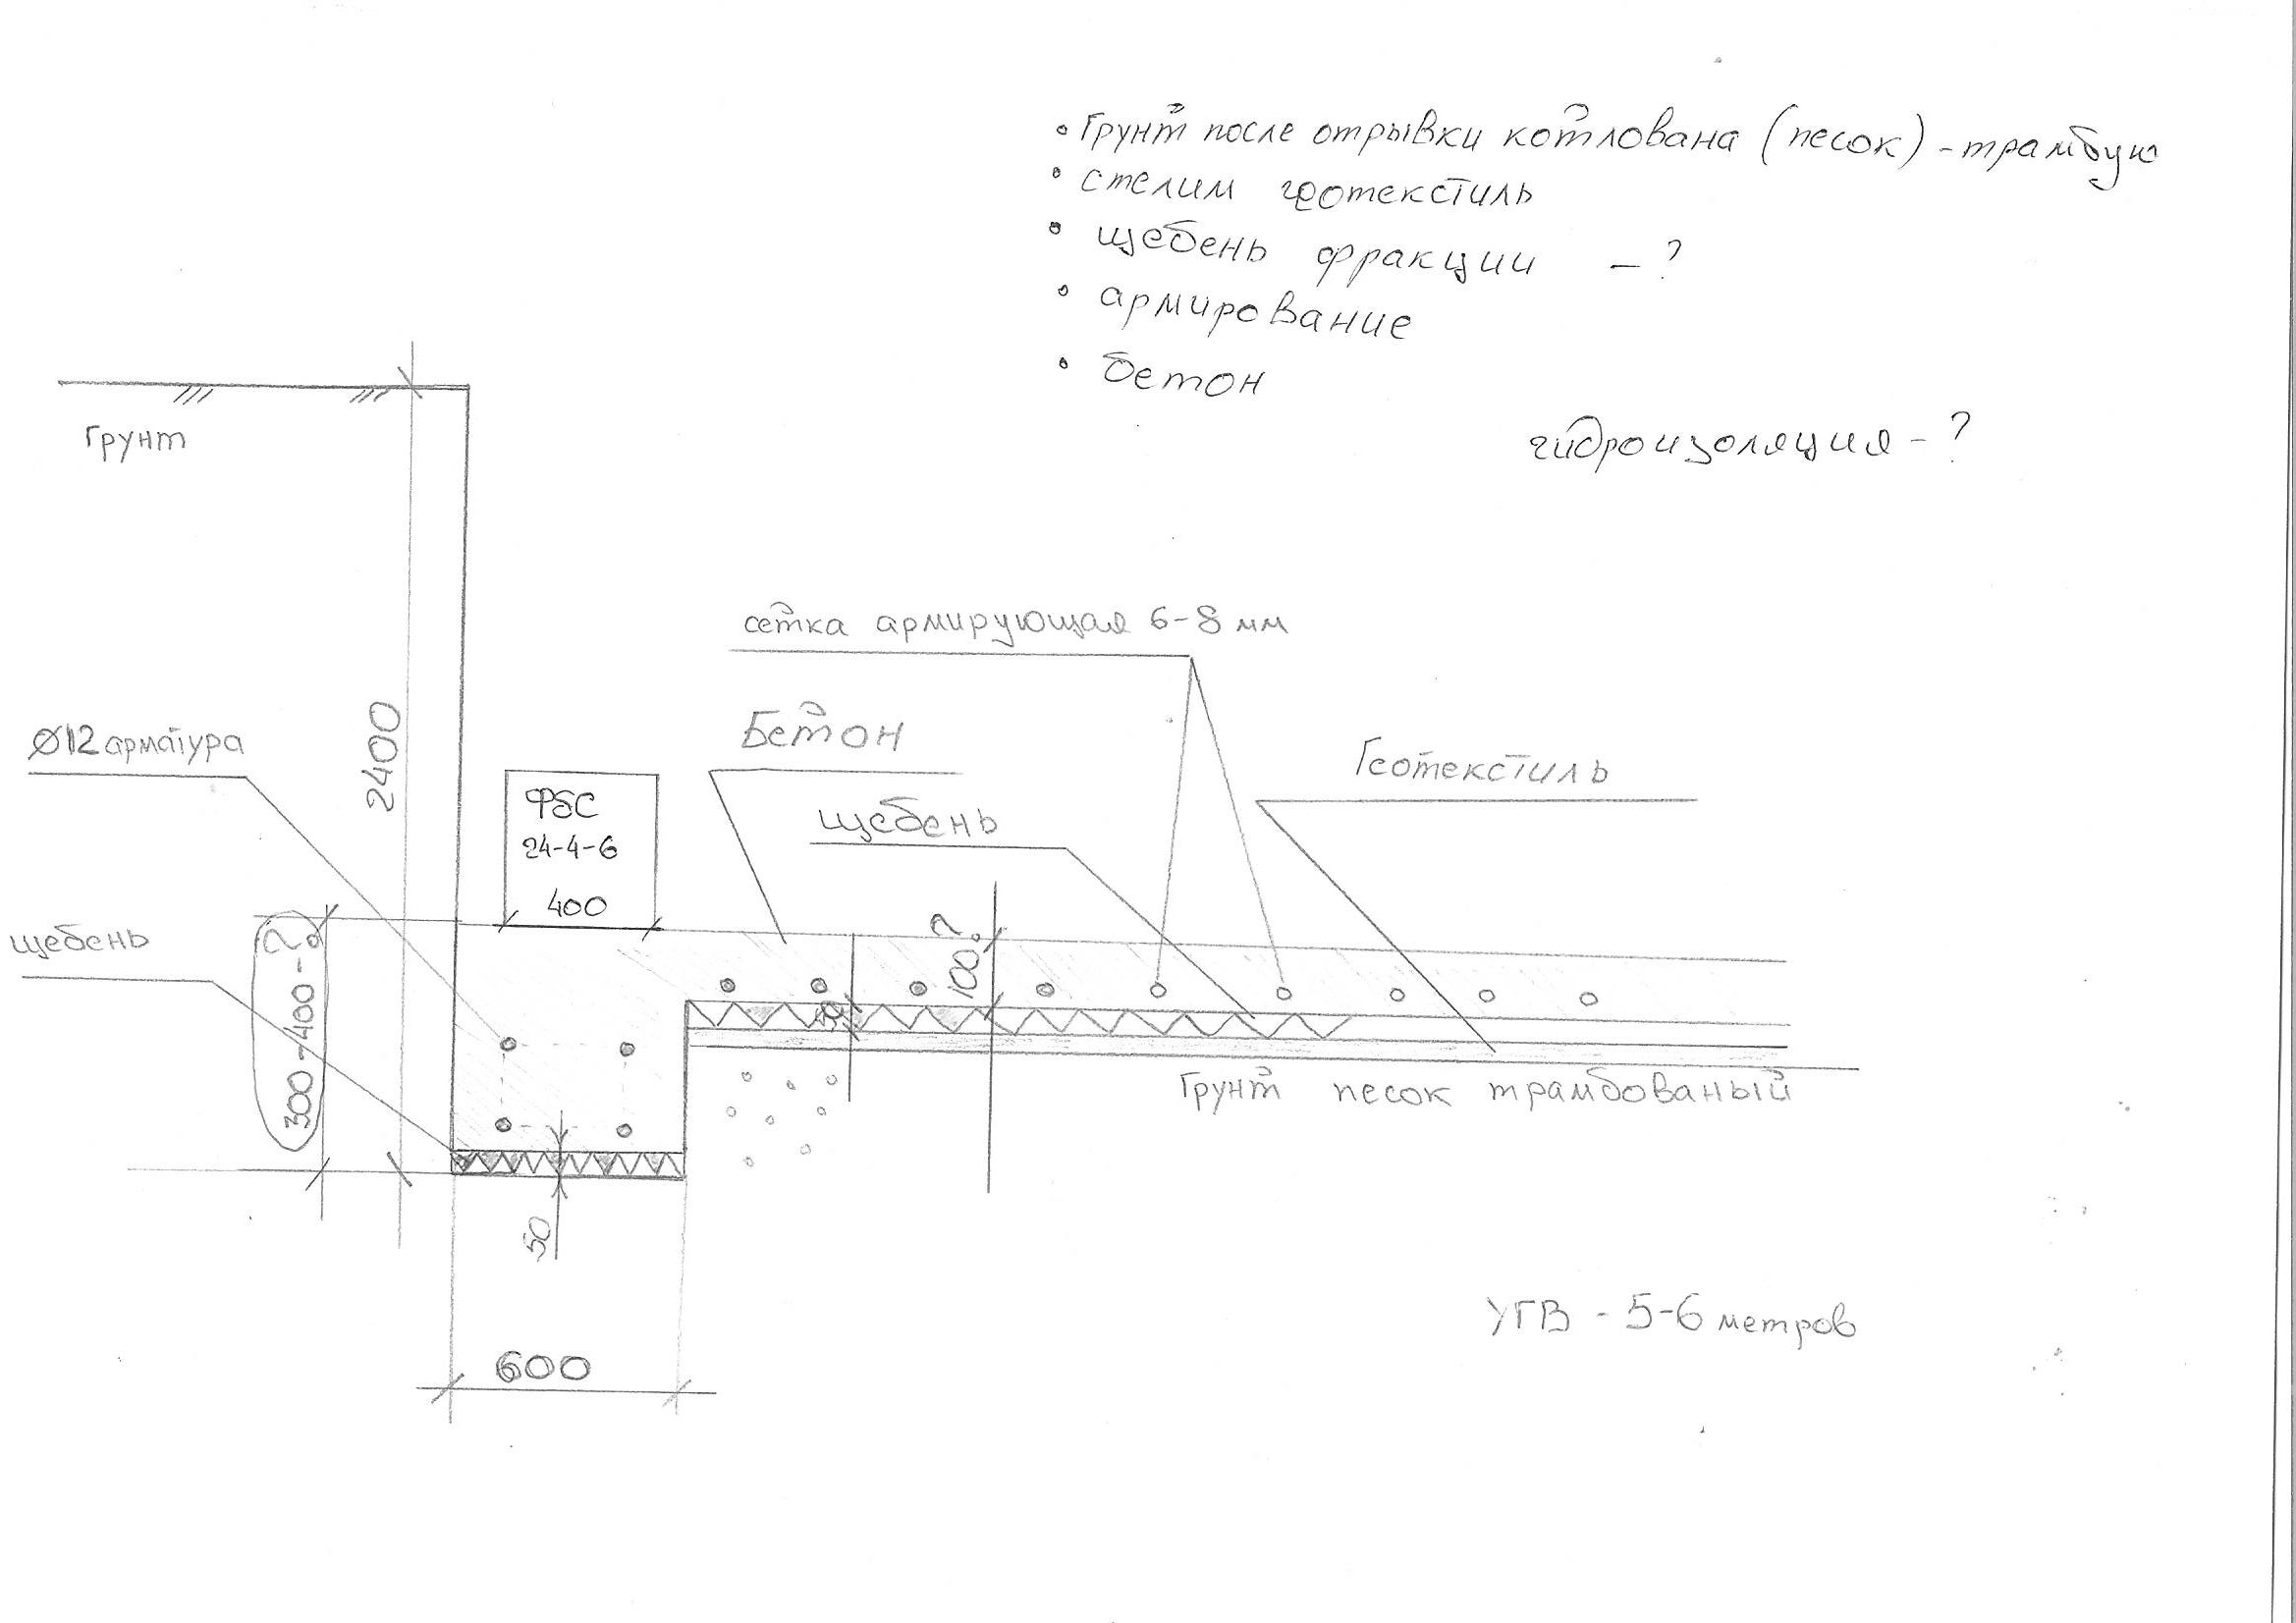 • Грунт после отрывки котлована (песок) - трамбую
• стелим геотекстиль
• щебень фракции - ?
• армирование
• бетон
гидроизоляция - ?
Грунт
сетка армирующая 6-8 мм
Ø12 арматура
2400
Бетон
Геотекстиль
ФБС
24-4-6
400
щебень
щебень
300-400-?
100?
50
Грунт песок трамбованый
50
УГВ - 5-6 метров
600